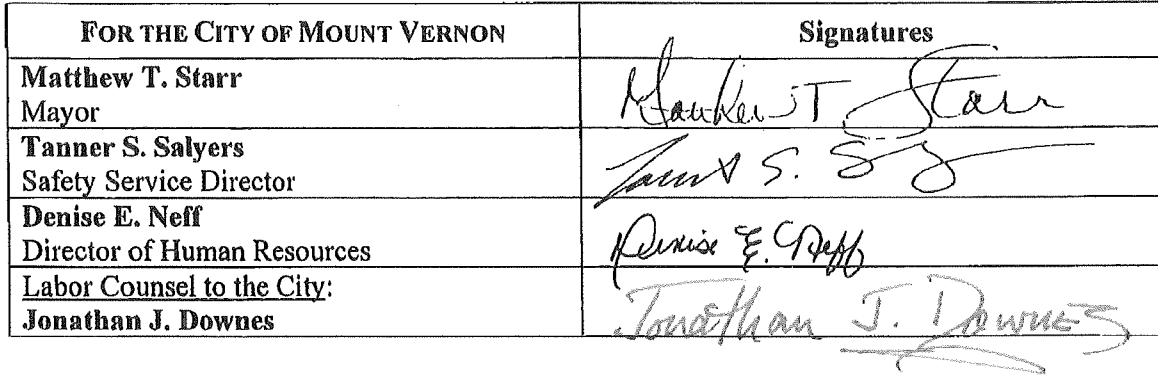 FOR THE CITY OF MOUNT VERNON
Signatures
Matthew T. Starr
Mayor
Matthew T Starr
Tanner S. Salyers
Safety Service Director
S. S
Denise E. Neff
Director of Human Resources
Denise E. Neff
Labor Counsel to the City:
Jonathan J. Downes
Jonathan J. Downes